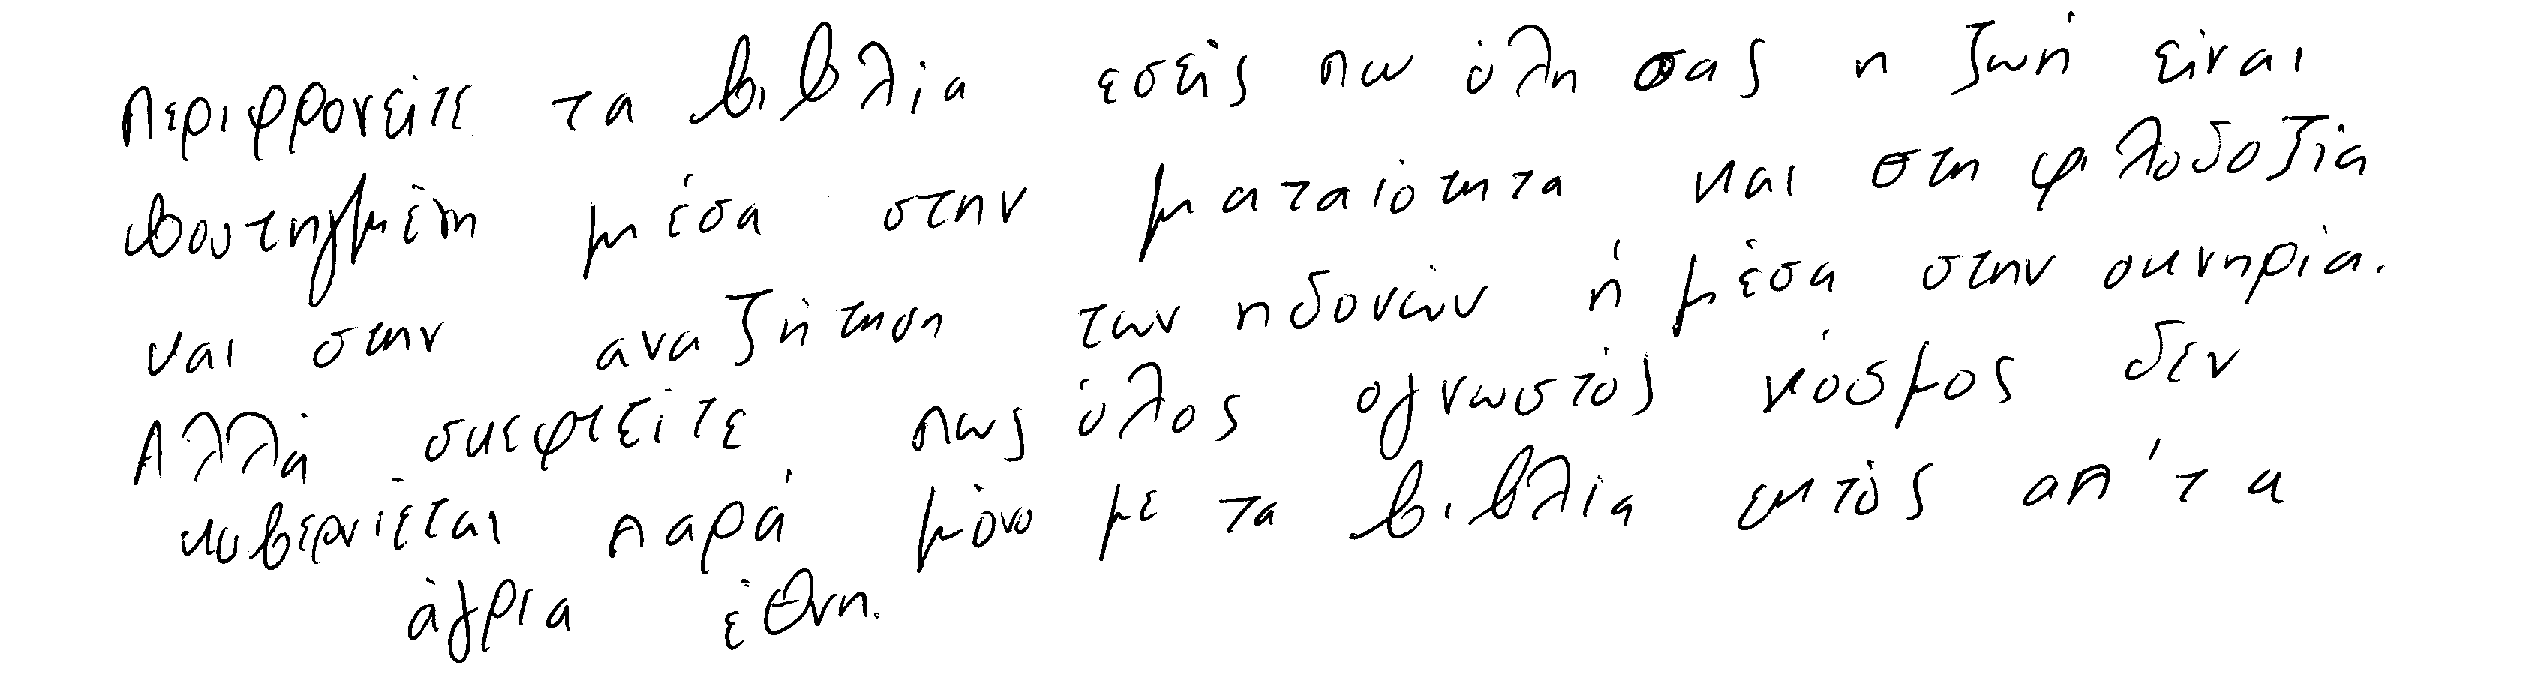 Περιφρονείτε τα βιβλία εσείς που όλη σας η ζωή είναι
βουτηγμένη μέσα στην ματαιότητα και στη φιλοδοξία
και στην αναζήτηση των ηδονών ή μέσα στην οκνηρία.
Αλλά σκεφτείτε πως όλος ο γνωστός κόσμος δεν
κυβερνιέται παρά μόνο με τα βιβλία εκτός απ' τα
άγρια έθνη.